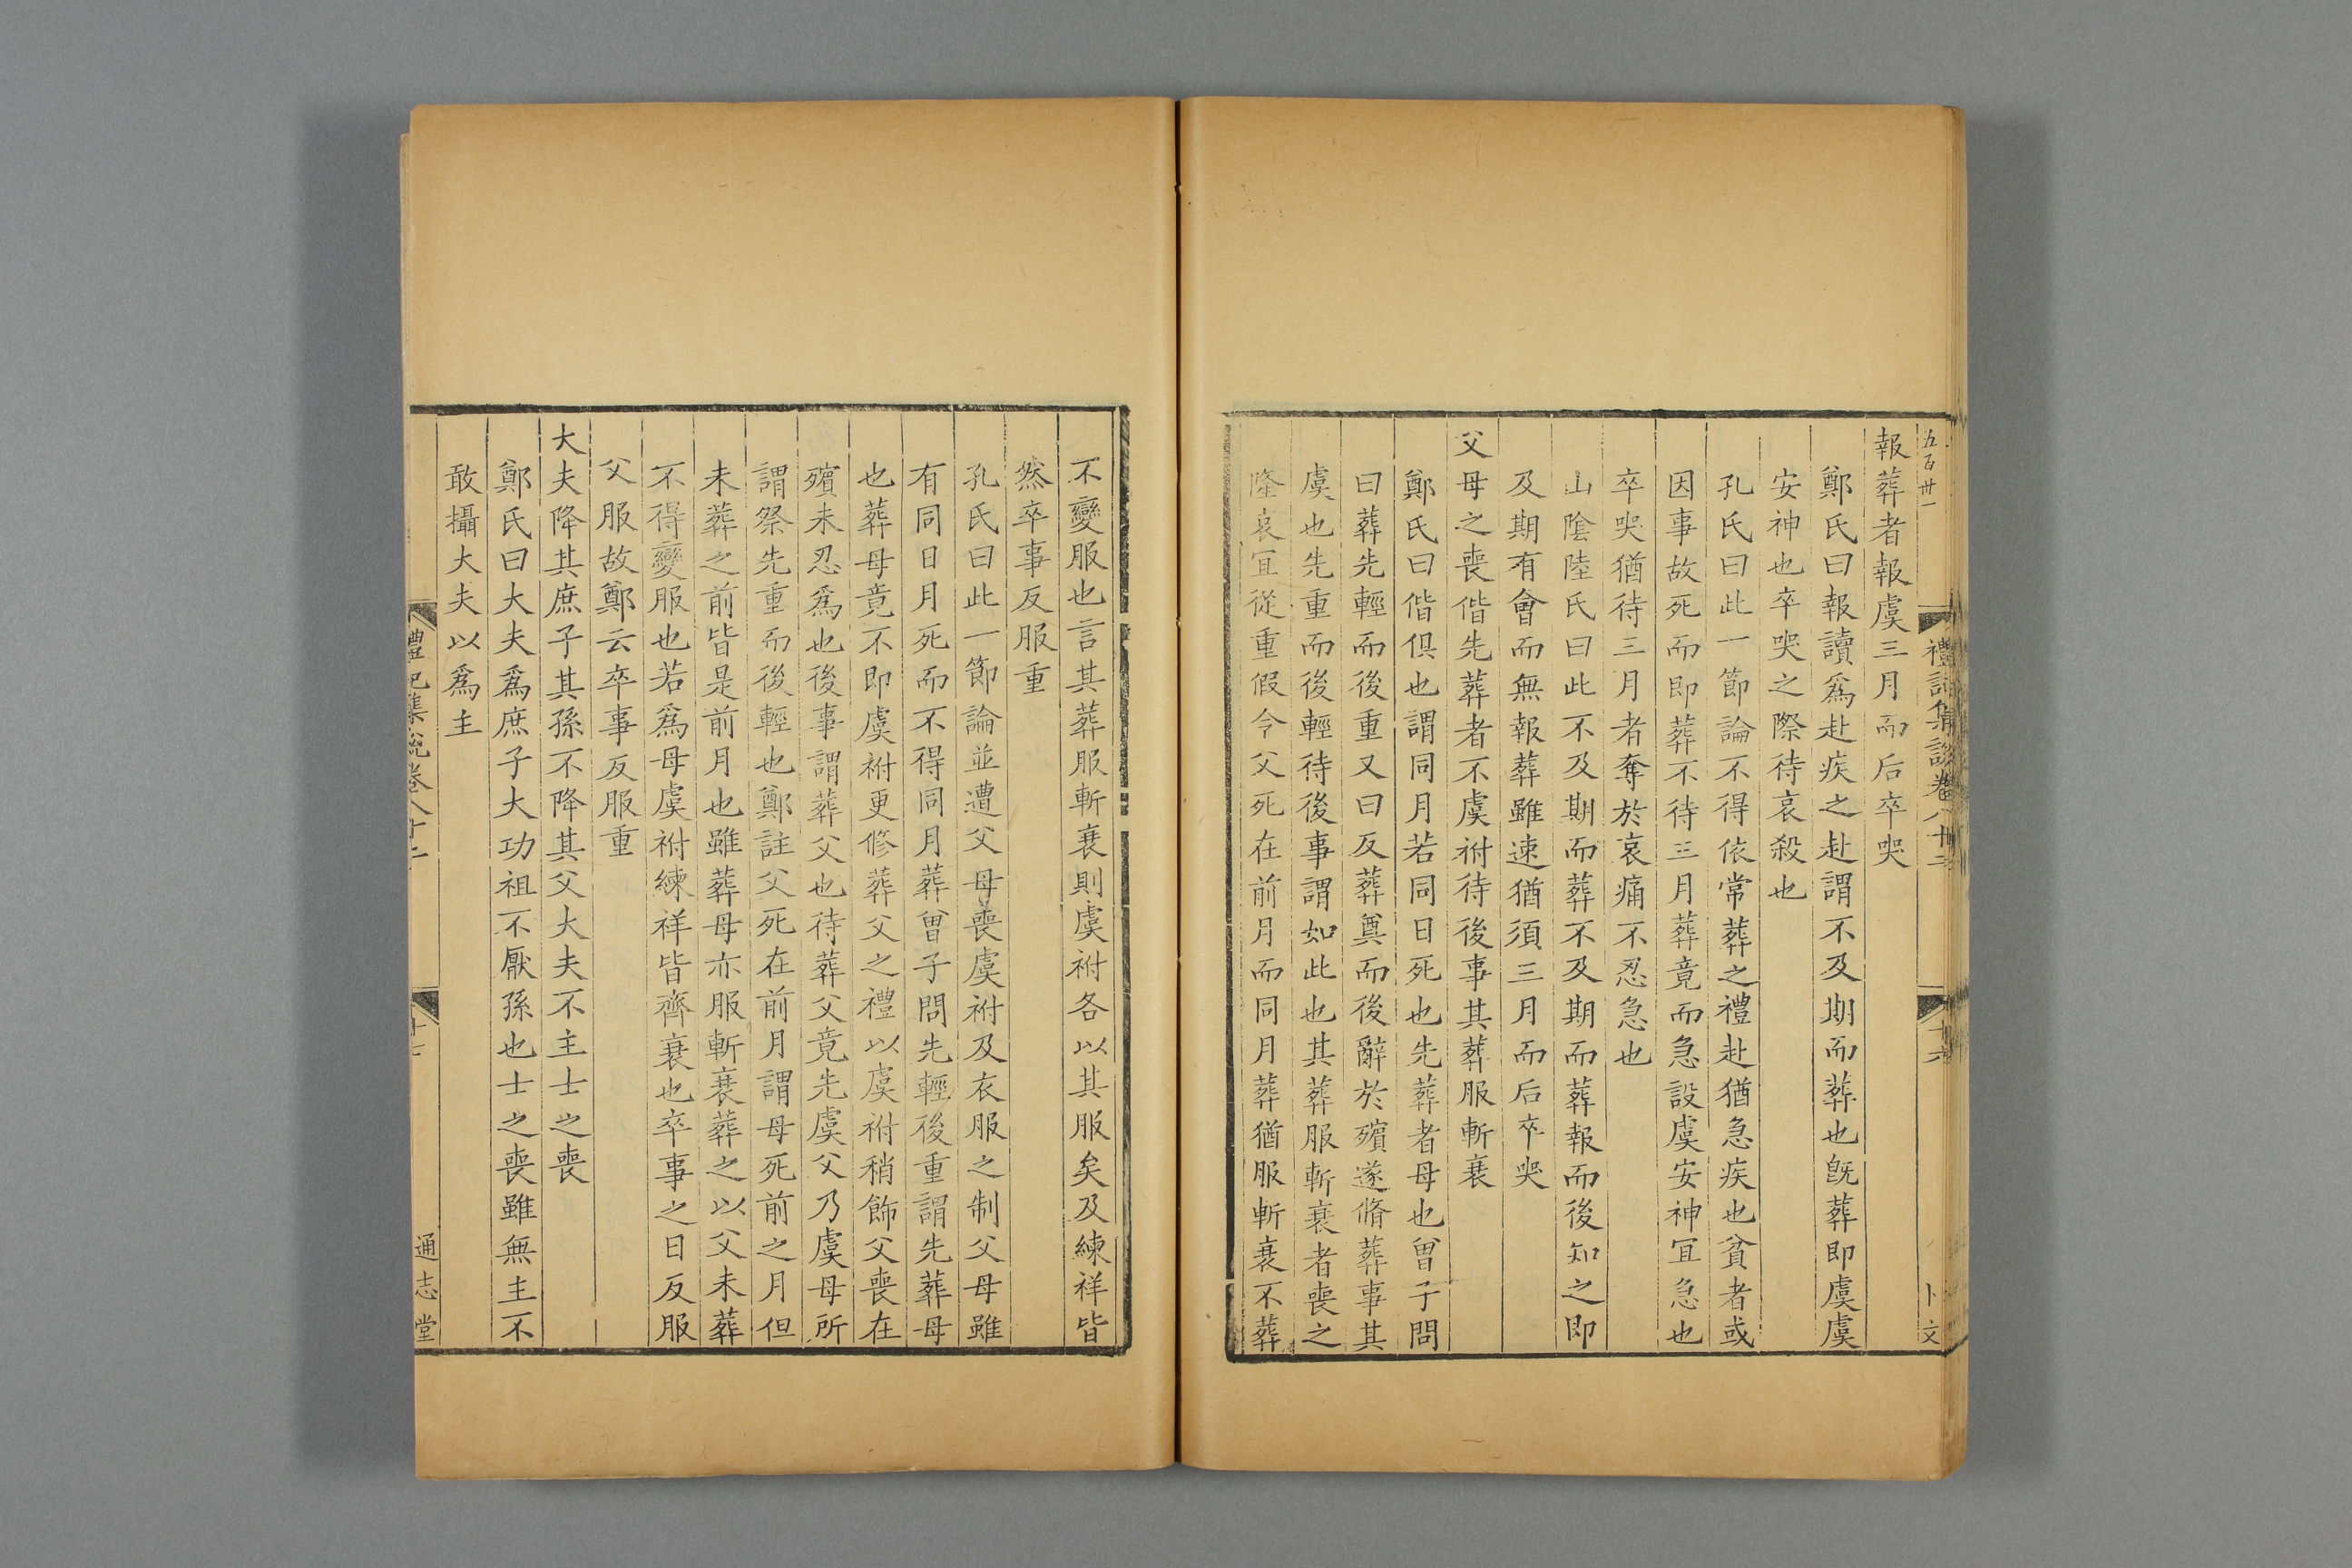 五百卅一
禮記集說卷八十二
十六
卜文
報葬者報虞三月而后卒哭
鄭氏曰報讀爲赴疾之赴謂不及期而葬也旣葬即虞虞
安神也卒哭之際待哀殺也
孔氏曰此一節論不得依常葬之禮赴猶急疾也貧者或
因事故死而即葬不待三月葬竟而急設虞安神冝急也
卒哭猶待三月者奪於哀痛不忍急也
山陰陸氏曰此不及期而葬不及期而葬報而後知之即
及期有會而無報葬雖速猶須三月而后卒哭
父母之喪偕先葬者不虞祔待後事其葬服斬衰
鄭氏曰偕俱也謂同月若同日死也先葬者母也曾子問
曰葬先輕而後重又曰反葬奠而後辭於殯遂脩葬事其
虞也先重而後輕待後事謂如此也其葬服斬衰者喪之
隆哀冝從重假令父死在前月而同月葬猶服斬衰不葬
不變服也言其葬服斬衰則虞祔各以其服矣及練祥皆
然卒事反服重
孔氏曰此一節論並遭父母喪虞祔及衣服之制父母雖
有同日月死而不得同月葬曾子問先輕後重謂先葬母
也葬母竟不即虞祔更修葬父之禮以虞祔稍飾父喪在
殯未忍爲也後事謂葬父也待葬父竟先虞父乃虞母所
謂祭先重而後輕也鄭註父死在前月謂母死前之月但
未葬之前皆是前月也雖葬母亦服斬衰葬之以父未葬
不得變服也若爲母虞祔練祥皆齊衰也卒事之日反服
父服故鄭云卒事反服重
大夫降其庶子其孫不降其父大夫不主士之喪
鄭氏曰大夫爲庶子大功祖不厭孫也士之喪雖無主不
敢攝大夫以爲主
禮記集說卷八十二
十七
通志堂